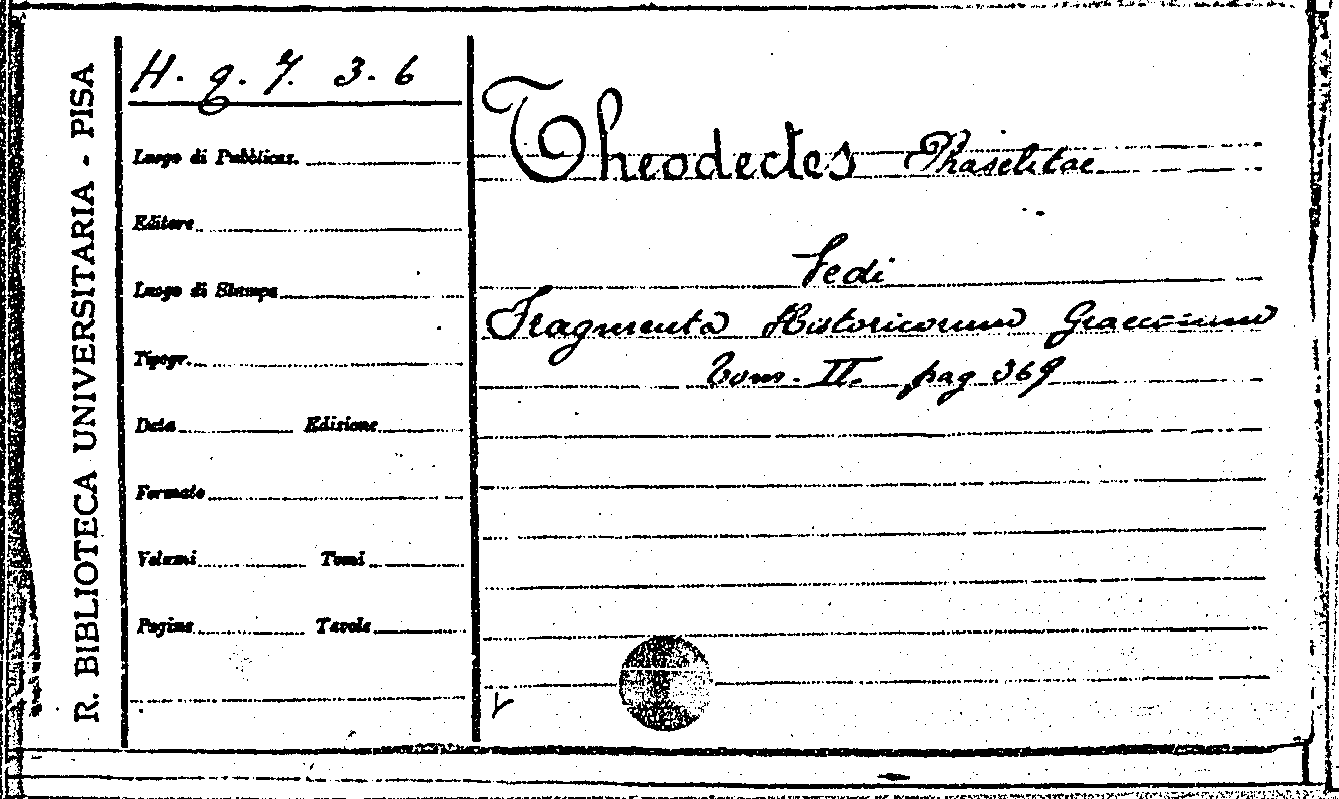 R. BIBLIOTECA UNIVERSITARIA - PISA
H. q. 7. 3. 6
Luogo di Pubblicaz.
Editore
Luogo di Stampa
Tipogr.
Data Edizione
Formato
Volumi Tomi
Pagine Tavole
Theodectes Phaselitae
Vedi
Fragmenta Historicorum Graecorum
Tom. II. pag 369